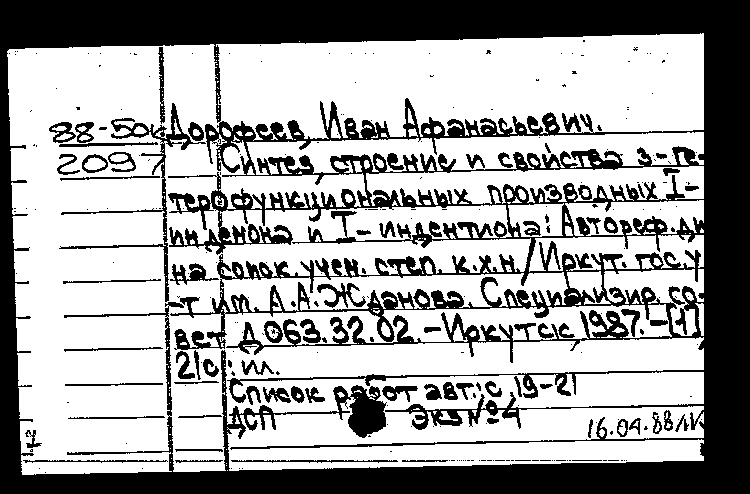 88-50к Дорофеев, Иван Афанасьевич.
2097 Синтез, строение и свойства 3-ге-
терофункциональных производных I-
инденона и I-индентиона: Автореф. ди
на соиск. учен. степ. к.х.н. / Иркут. гос. у
-т им. А.А. Жданова. Специализир. со-
вет Д 063.32.02. - Иркутск, 1987. - [1],
21с.: ил.
Список работ авт.: с. 19-21
ДСП Экз № 4
16.04.88